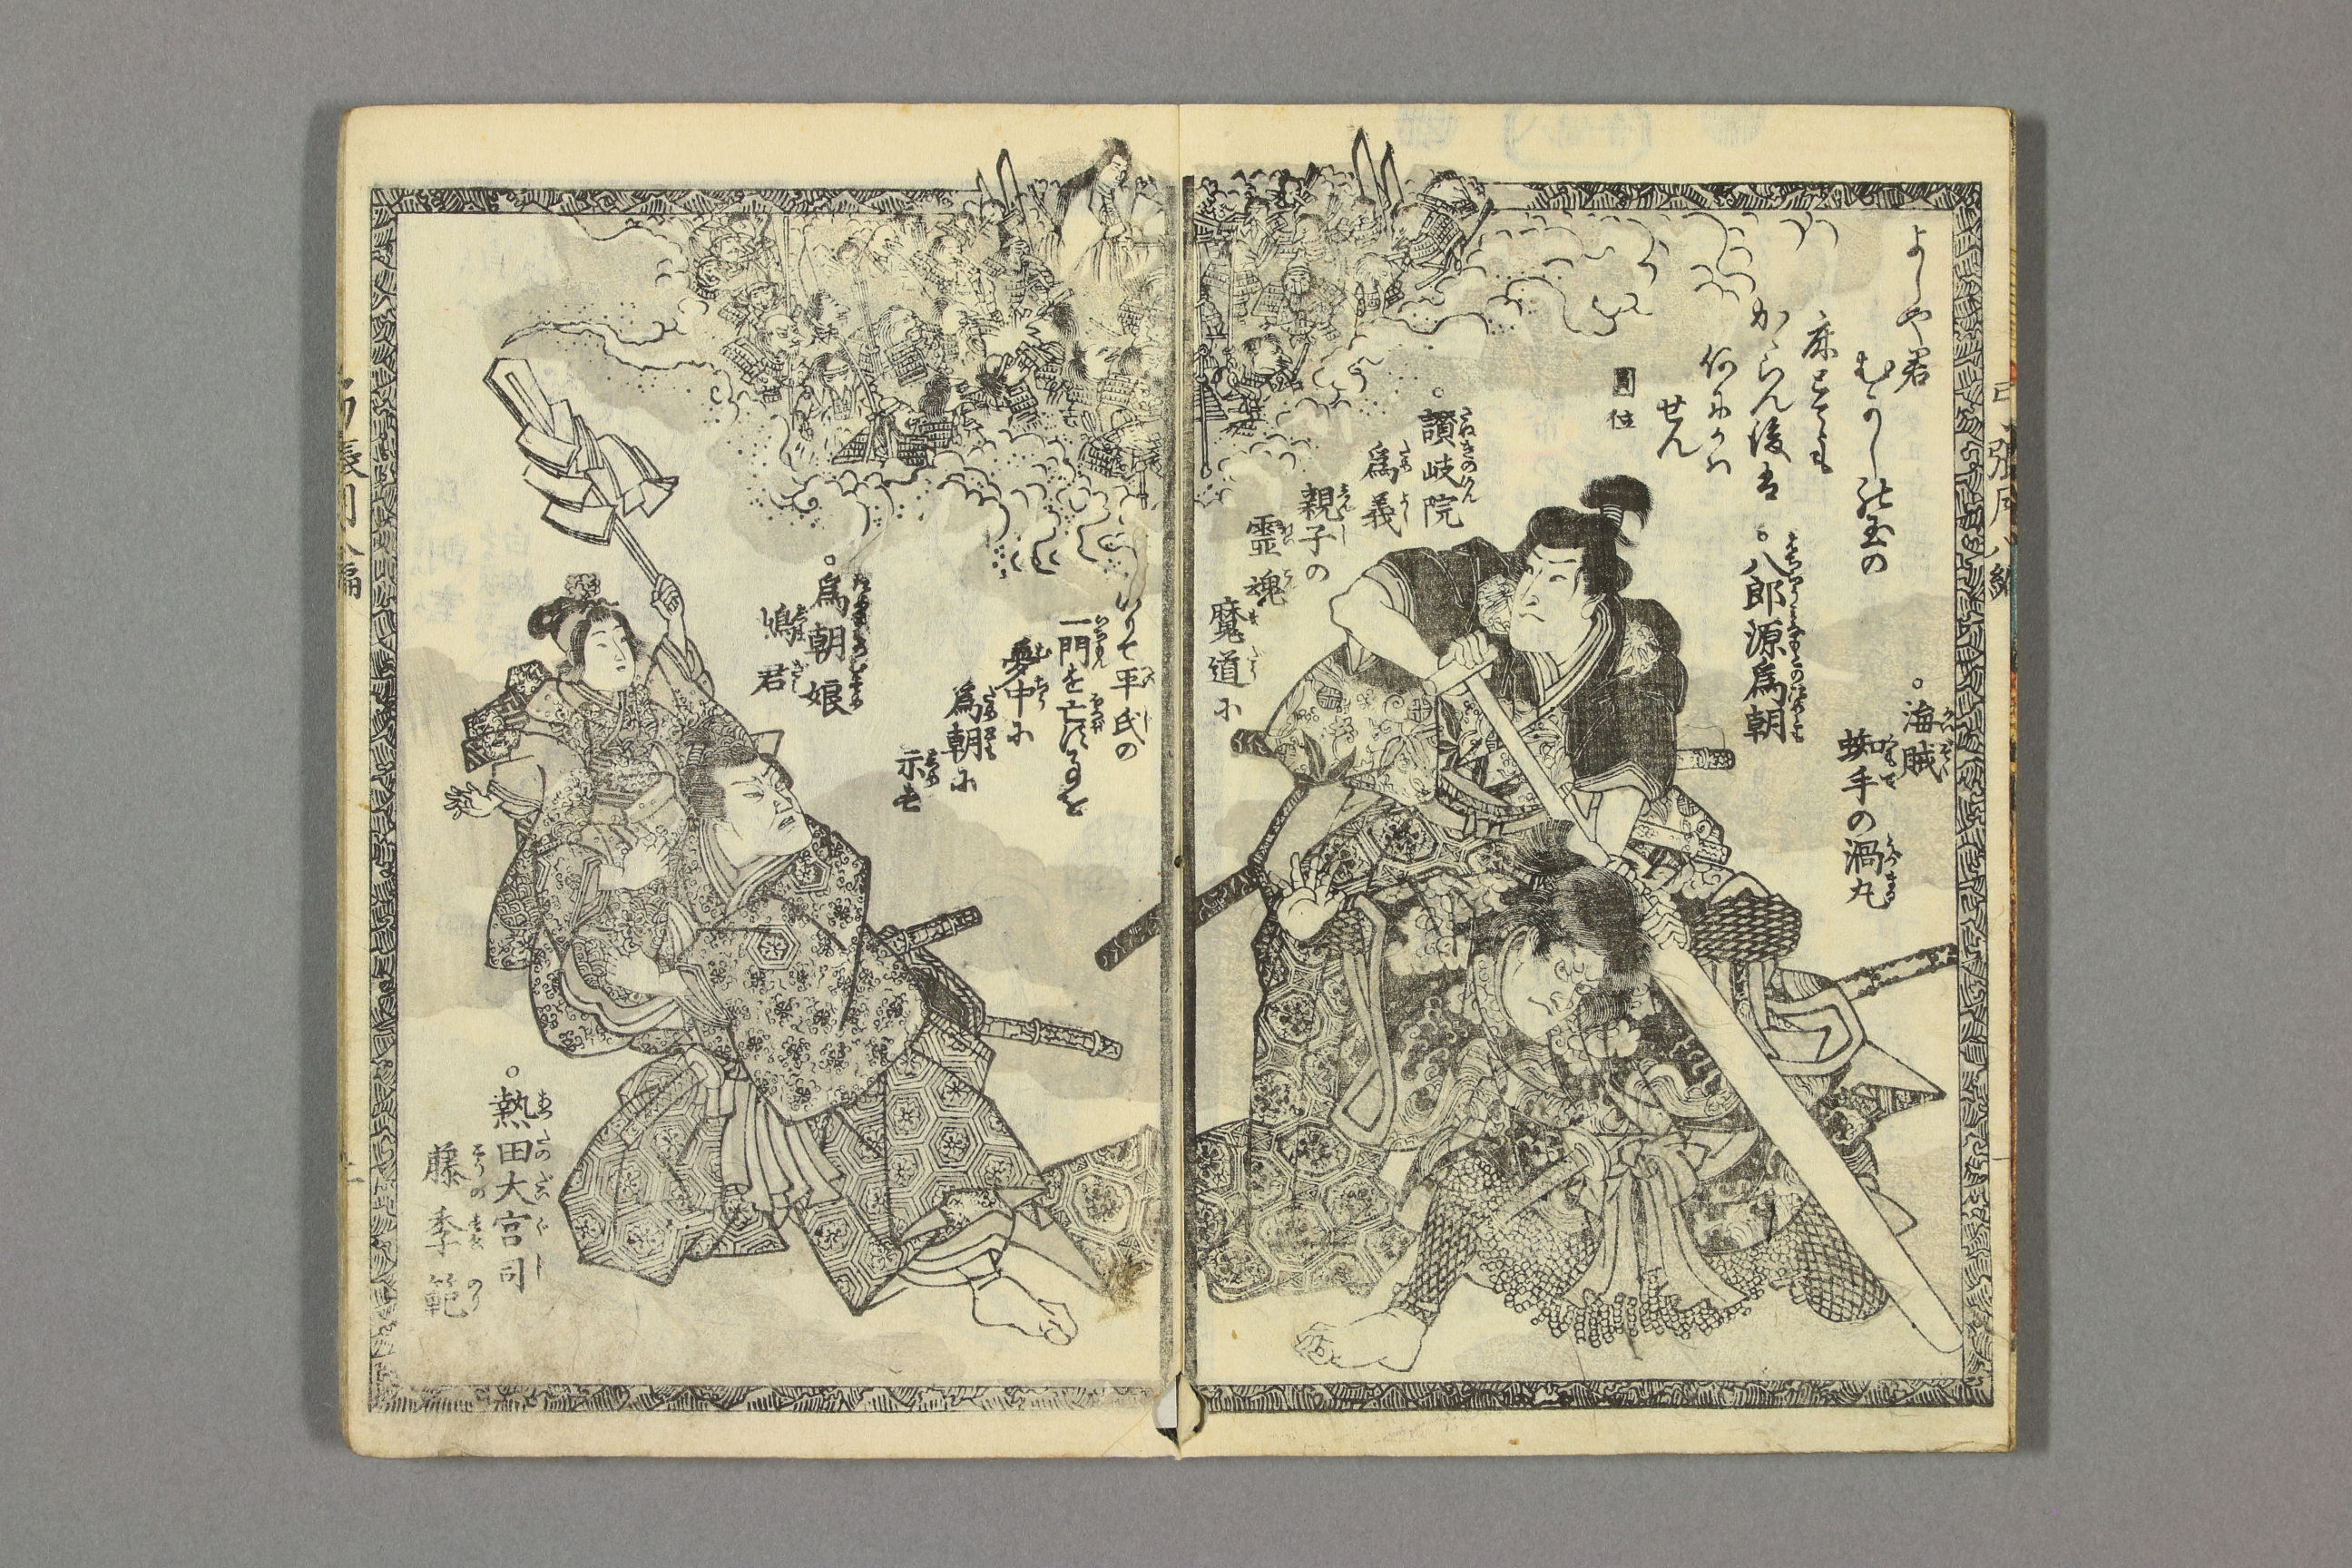 よしや君
むかしの玉の
床とても
かゝらん後は
何にかは
せん
圓位
海賊
蜘手の渦丸
八郎源爲朝
讃岐院
爲義
親子の
霊魂
魔道に
いりて平氏の
一門を亡す事を
夢中に
爲朝に
示す
爲朝娘
鳰君
熱田大宮司
藤季範
弓張月八編